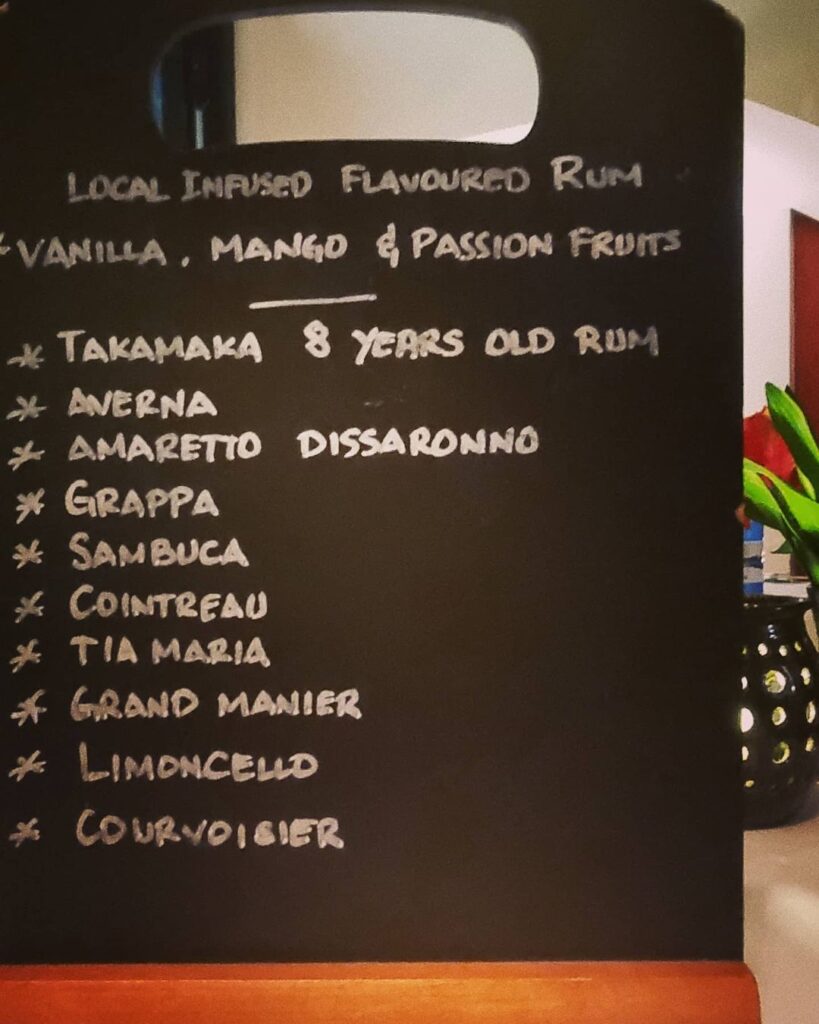 LOCAL INFUSED FLAVOURED RUM
* VANILLA, MANGO & PASSION FRUITS
* TAKAMAKA 8 YEARS OLD RUM
* AVERNA
* AMARETTO DISSARONNO
* GRAPPA
* SAMBUCA
* COINTREAU
* TIA MARIA
* GRAND MANIER
* LIMONCELLO
* COURVOISIER